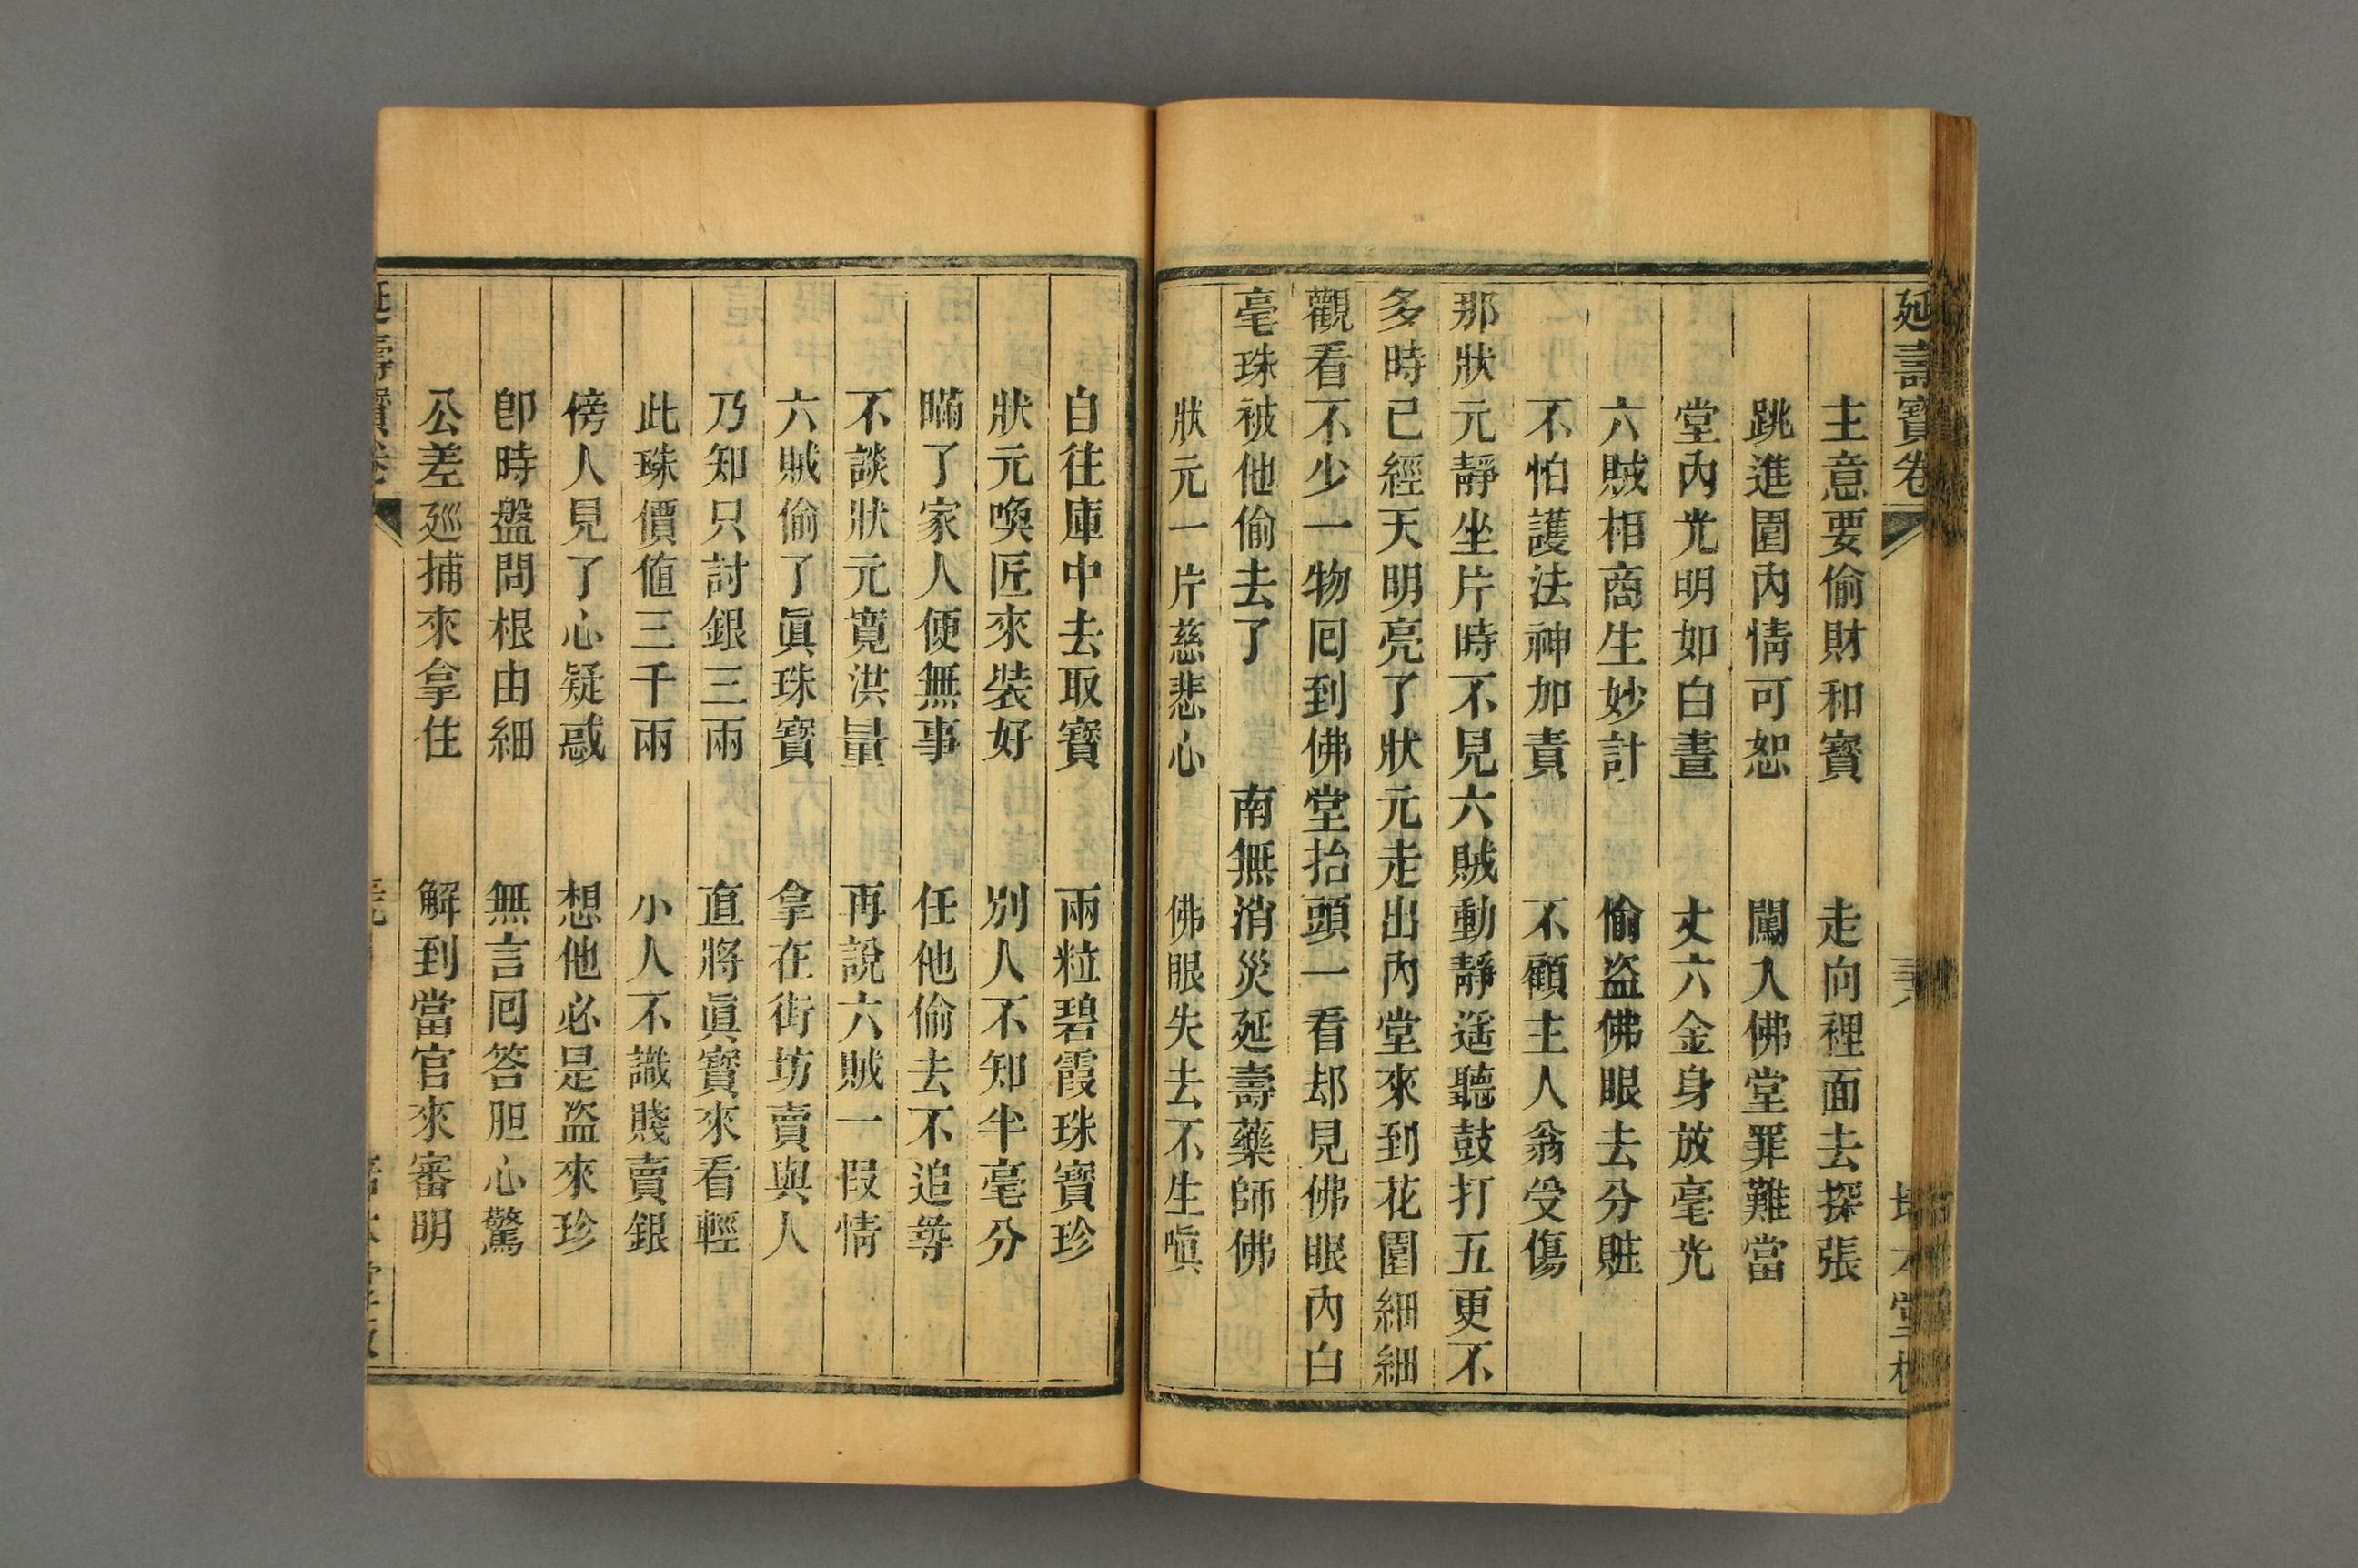 延壽寶卷
主意要偷財和寶　走向裡面去探張
跳進園內情可恕　闖入佛堂罪難當
堂內光明如白晝　丈六金身放毫光
六賊相商生妙計　偷盗佛眼去分賍
不怕護法神加責　不顧主人翁受傷
那狀元靜坐片時不見六賊動靜遥聽鼓打五更不
多時已經天明亮了狀元走出內堂來到花園細細
觀看不少一物囘到佛堂抬頭一看却見佛眼內白
毫珠被他偷去了　南無消災延壽藥師佛
狀元一片慈悲心　佛眼失去不生嗔
自往庫中去取寶　兩粒碧霞珠寶珍
狀元喚匠來裝好　別人不知半毫分
瞞了家人便無事　任他偷去不追尋
不談狀元寬洪量　再說六賊一假情
六賊偷了眞珠寶　拿在街坊賣與人
乃知只討銀三兩　直將眞寶來看輕
此珠價値三千兩　小人不識賤賣銀
傍人見了心疑惑　想他必是盗來珍
卽時盤問根由細　無言囘答胆心驚
公差廵捕來拿住　解到當官來審明
延壽寶卷